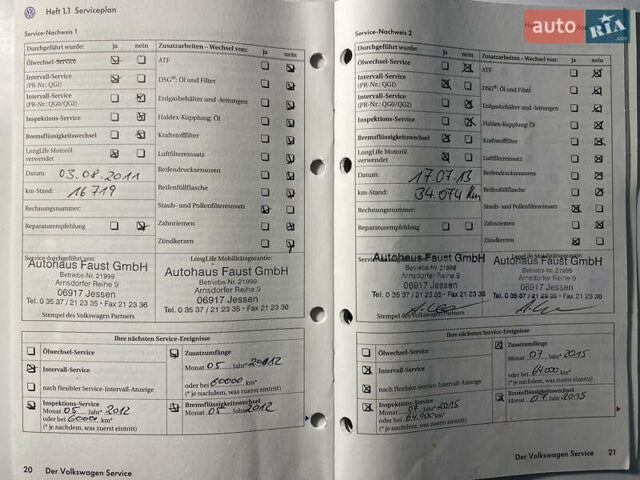 Heft 1.1 Serviceplan
Service-Nachweis 1
Durchgeführt wurde: ja nein
Ölwechsel-Service
Intervall-Service
(PR-Nr.: QGI)
Intervall-Service
(PR-Nr.: QG0/QG2)
Inspektions-Service
Bremsflüssigkeitswechsel
LongLife Motoröl
verwendet
Datum: 03.08.2011
km-Stand: 16719
Rechnungsnummer:
Reparaturempfehlung
Zusatzarbeiten - Wechsel von: ja nein
ATF
DSG®: Öl und Filter
Erdgasbehälter und -leitungen
Haldex-Kupplung: Öl
Kraftstofffilter
Luftfiltereinsatz
Reifendrucksensoren
Reifenfüllflasche
Staub- und Pollenfiltereinsatz
Zahnriemen
Zündkerzen
Service durchgeführt von:
Autohaus Faust GmbH
Betriebs-Nr. 21999
Arnsdorfer Reihe 9
06917 Jessen
Tel. 0 35 37 / 21 23 35 • Fax 21 23 36
Stempel des Volkswagen Partners
LongLife Mobilitätsgarantie:
Autohaus Faust GmbH
Betriebs-Nr. 21999
Arnsdorfer Reihe 9
06917 Jessen
Tel. 0 35 37 / 21 23 35 • Fax 21 23 36
Ihre nächsten Service-Ereignisse
Ölwechsel-Service
Intervall-Service
nach flexibler Service-Intervall-Anzeige
Inspektions-Service
Monat 05 Jahr* 2012
oder bei 60000 km*
(* je nachdem, was zuerst eintritt)
Zusatzumfänge
Monat 05 Jahr* 2012
oder bei 60000 km*
(* je nachdem, was zuerst eintritt)
Bremsflüssigkeitswechsel
Monat 05 Jahr 2012
20 Der Volkswagen Service
Heft 1.1
Service-Nachweis 2
Durchgeführt wurde: ja nein
Ölwechsel-Service
Intervall-Service
(PR-Nr.: QGI)
Intervall-Service
(PR-Nr.: QG0/QG2)
Inspektions-Service
Bremsflüssigkeitswechsel
LongLife Motoröl
verwendet
Datum: 17.07.13
km-Stand: 34.074 Km
Rechnungsnummer:
Reparaturempfehlung
Zusatzarbeiten - Wechsel von: ja nein
ATF
DSG®: Öl und Filter
Erdgasbehälter und -leitungen
Haldex-Kupplung: Öl
Kraftstofffilter
Luftfiltereinsatz
Reifendrucksensoren
Reifenfüllflasche
Staub- und Pollenfiltereinsatz
Zahnriemen
Zündkerzen
Autohaus Faust GmbH
Betriebs-Nr. 21999
Arnsdorfer Reihe 9
06917 Jessen
Tel. 0 35 37 / 21 23 35 • Fax 21 23 36
Stempel des Volkswagen Partners
Autohaus Faust GmbH
Betriebs-Nr. 21999
Arnsdorfer Reihe 9
06917 Jessen
Tel. 0 35 37 / 21 23 35 • Fax 21 23 36
Ihre nächsten Service-Ereignisse
Ölwechsel-Service
Intervall-Service
nach flexibler Service-Intervall-Anzeige
Inspektions-Service
Monat 07 Jahr* 2015
oder bei 64.000 km*
(* je nachdem, was zuerst eintritt)
Zusatzumfänge
Monat 07 Jahr* 2015
oder bei 64.000 km*
(* je nachdem, was zuerst eintritt)
Bremsflüssigkeitswechsel
Monat 07 Jahr 2015
Der Volkswagen Service 21
auto RIA.com